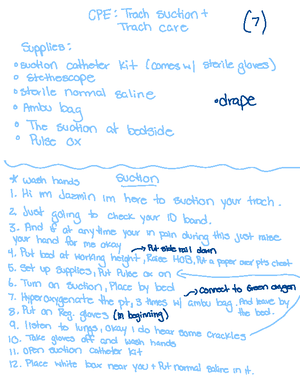 CPE: Trach suction +
Trach care
(7)
Supplies:
• suction catheter kit (comes w/ sterile gloves)
• stethescope
• sterile normal saline
• Ambu bag
• drape
• The suction at bedside
• Pulse ox
* wash hands
suction
1. Hi im Jazmin im here to suction your trach.
2. Just going to check your ID band.
3. And if at any time your in pain during this just raise
your hand for me okay → Put side rail down
4. Put bed at working height, Raise HOB, Put a paper over pts chest
5. Set up supplies, Put Pulse ox on
6. Turn on suction, Place by bed → Connect to Green oxygen
7. Hyperoxygenate the pt, 3 times w/ ambu bag. And leave by
the bed.
8. Put on Reg. gloves (in beginning)
9. listen to lungs, okay I do hear some crackles
10. Take gloves off and wash hands
11. Open suction catheter kit
12. Place white box near you + Put normal saline in it.